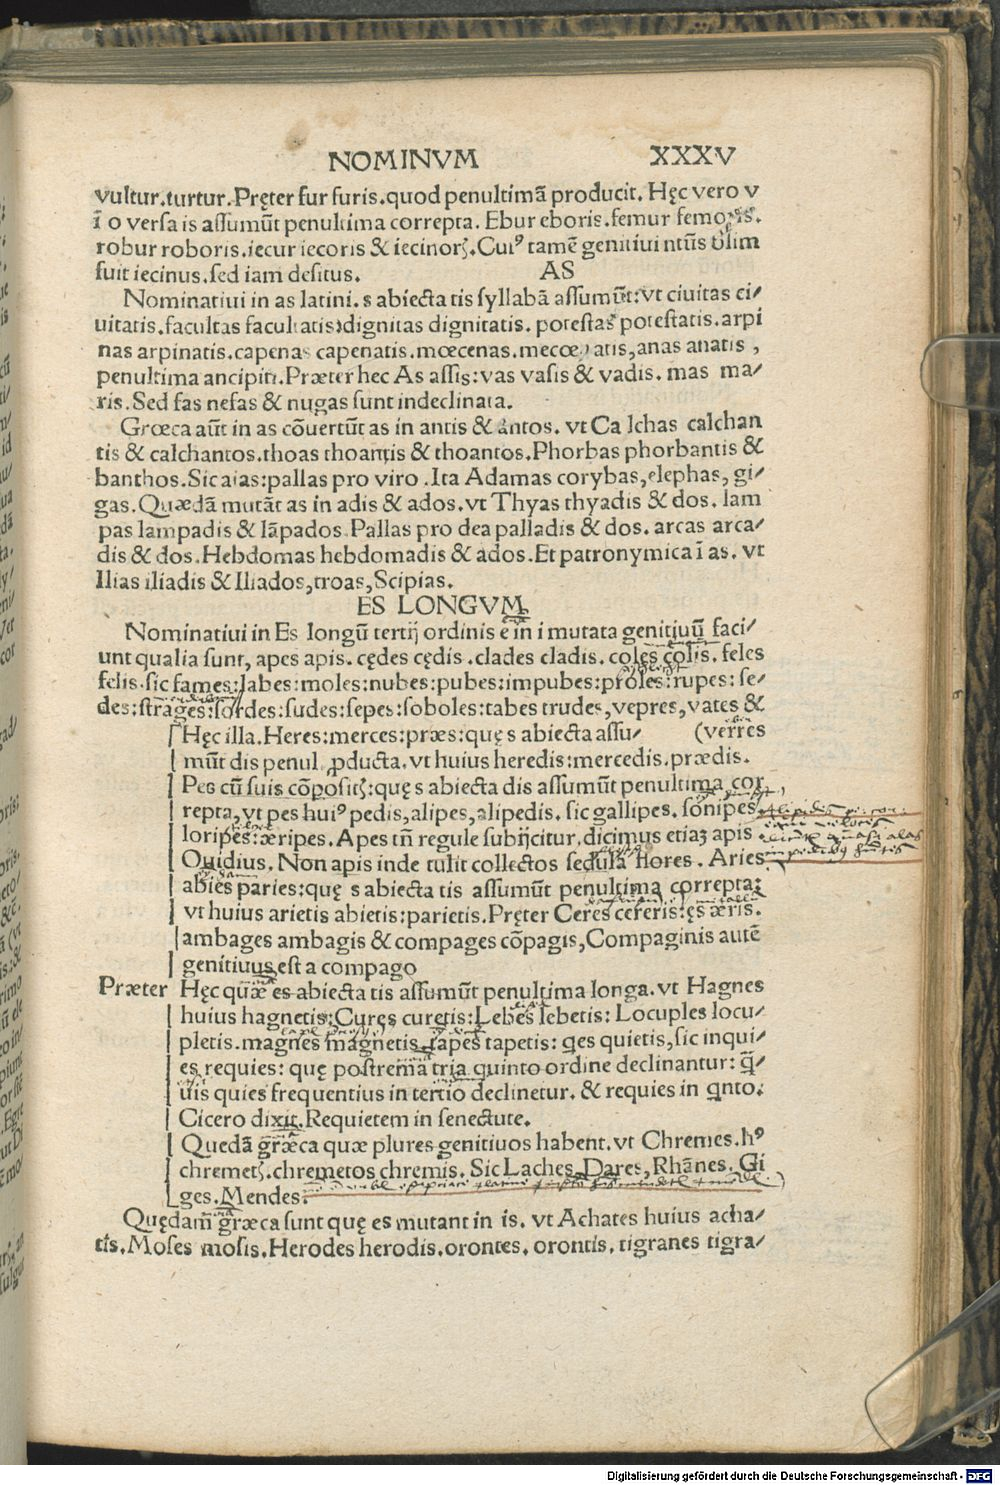 NOMINVM XXXV
vultur.turtur.Pręter fur furis.quod penultimā producit. Hęc vero v
ī o versa is assumūt penultima correpta. Ebur eboris.femur femoris.
robur roboris.iecur iecoris & iecinorꝭ.Cuiꝰ tamē genitiui ntūs olim
fuit iecinus.sed iam desitus.
AS
Nominatiui in as latini.s abiecta tis syllabā assumūt:vt ciuitas ci/
uitatis.facultas facultatis:dignitas dignitatis. potestas potestatis.arpi
nas arpinatis.capenas capenatis.mœcenas.mecœnatis,anas anatis ,
penultima ancipiti.Præter hec As assis:vas vasis & vadis. mas ma/
ris.Sed fas nefas & nugas sunt indeclinata.
Grœca aūt in as cōuertūt as in antis & antos. vt Ca lchas calchan
tis & calchantos.thoas thoantis & thoantos.Phorbas phorbantis &
banthos.Sic aias:pallas pro viro .Ita Adamas corybas,elephas, gi/
gas.Quædā mutāt as in adis & ados.vt Thyas thyadis & dos. lam
pas lampadis & lāpados.Pallas pro dea palladis & dos. arcas arca/
dis & dos.Hebdomas hebdomadis & ados.Et patronymica ī as. vt
Ilias iliadis & Iliados,troas,Scipias.
ES LONGVM
Nominatiui in Es longū tertij ordinis e in i mutata genitiuū faci/
unt qualia sunt, apes apis. cędes cędis .clades cladis. coles colis. feles
felis.sic fames:labes:moles:nubes:pubes:impubes:proles:rupes: se/
des:strages:sordes:sudes:sepes:soboles:tabes trudes,vepres,vates &
Hęc illa.Heres:merces:præs:quę s abiecta assu/ (verres
mūt dis penul ꝓducta.vt huius heredis:mercedis.prædis.
Pes cū suis cōpositꝭ:quę s abiecta dis assumūt penultima cor
repta,vt pes huiꝰ pedis,alipes,alipedis. sic gallipes. sonipes
loripes:æripes. Apes tn̄ regule subijcitur,dicimus etiaꝫ apis
Ouidius. Non apis inde tulit collectos sedula flores. Aries
abies paries:quę s abiecta tis assumūt penultima correpta:
vt huius arietis abietis:parietis.Pręter Ceres ceteris:ęs æris.
ambages ambagis & compages cōpagis,Compaginis autē
genitiuus est a compago
Præter Hęc quæ es abiecta tis assumūt penultima longa.vt Hagnes
huius hagnetis:Cures curetis:Lebes lebetis: Locuples locu/
pletis.magnes magnetis,tapes tapetis: ꝗes quietis,sic inqui/
es requies: quę postrema tria quinto ordine declinantur: ꝗ̄/
uis quies frequentius in tertio declinetur. & requies in ꝗnto.
Cicero dixit.Requietem in senectute.
Quedā græca quæ plures genitiuos habent.vt Chremes.hꝰ
chremetꝭ.chremetos chremis. Sic Laches,Dares,Rhānes. Gi
ges.Mendes.
Quędam græca sunt quę es mutant in is. vt Achates huius acha/
tis.Moses mosis.Herodes herodis.orontes. orontis. tigranes tigra/
Digitalisierung gefördert durch die Deutsche Forschungsgemeinschaft - DFG